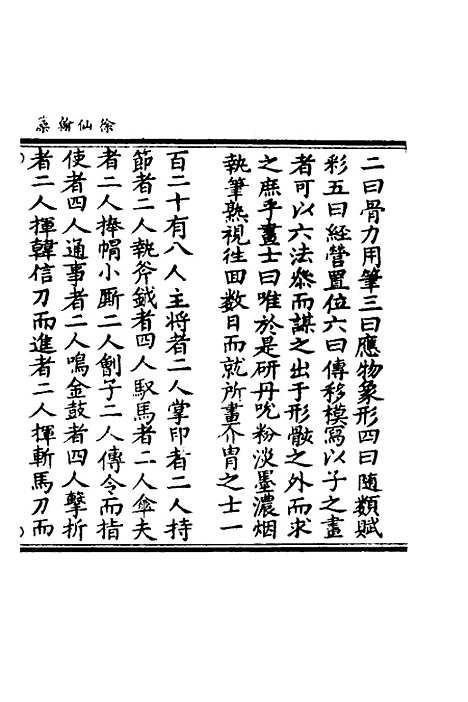 徐仙翰藻
二曰骨力用筆三曰應物象形四曰隨類賦
彩五曰經營置位六曰傳移模寫以子之畫
者可以六法叅而謀之出于形骸之外而求
之庶乎畫士曰唯於是研丹吮粉淡墨濃烟
執筆熟視徃回数日而就所畫介胄之士一
百二十有八人主將者二人掌印者二人持
節者二人執斧鉞者四人馭馬者二人傘夫
者二人捧帽小厮二人劊子二人傳令而指
使者四人通事者二人鳴金鼓者四人擊折
者二人揮韓信刀而進者二人揮斬馬刀而